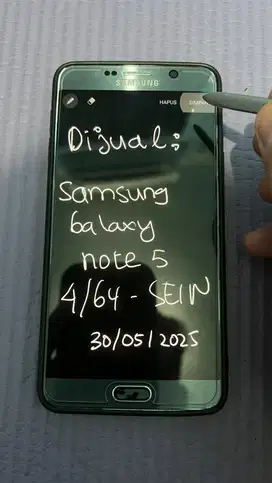 SAMSUNG
HAPUS SIMPAN
Dijual:
Samsung
Galaxy
note 5
4/64 - SEIN
30/05/2025